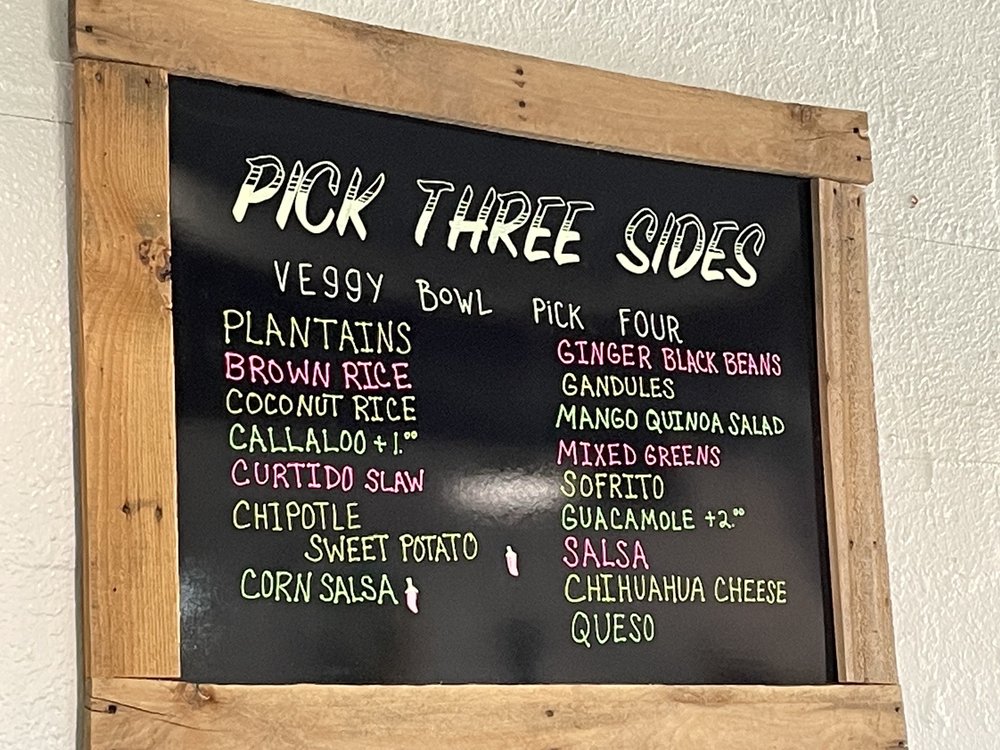 PICK THREE SIDES
VEGGY BOWL PICK FOUR
PLANTAINS
BROWN RICE
COCONUT RICE
CALLALOO +1.00
CURTIDO SLAW
CHIPOTLE
SWEET POTATO
CORN SALSA
GINGER BLACK BEANS
GANDULES
MANGO QUINOA SALAD
MIXED GREENS
SOFRITO
GUACAMOLE +2.00
SALSA
CHIHUAHUA CHEESE
QUESO